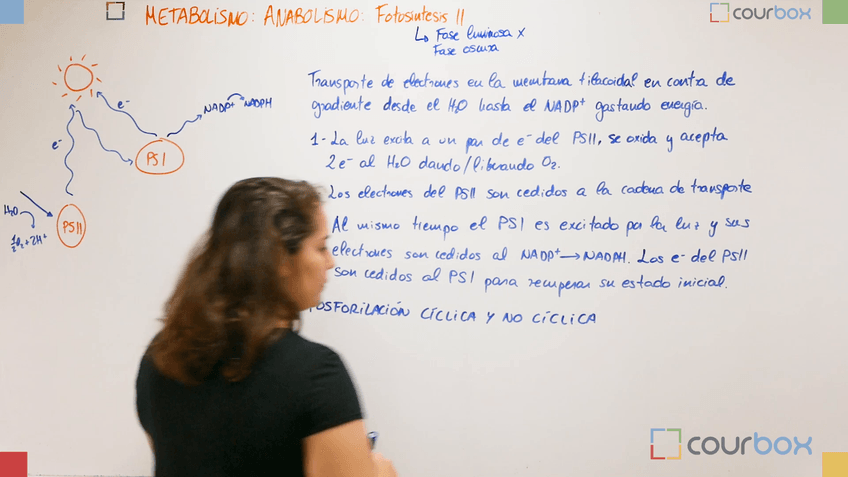 METABOLISMO: ANABOLISMO: Fotosíntesis II
↳ Fase luminosa x
Fase oscura
courbox
Transporte de electrones en la membrana tilacoidal en contra de
gradiente desde el H2O hasta el NADP+ gastando energía.
1- La luz excita a un par de e- del PSII, se oxida y acepta
2e- al H2O dando/liberando O2.
Los electrones del PSII son cedidos a la cadena de transporte
Al mismo tiempo el PSI es excitado por la luz y sus
electrones son cedidos al NADP+ → NADPH. Los e- del PSII
son cedidos al PSI para recuperar su estado inicial.
FOSFORILACIÓN CÍCLICA Y NO CÍCLICA
e-
NADP+ NADPH
e-
PSI
H2O
PSII
1/2 O2 + 2H+
courbox